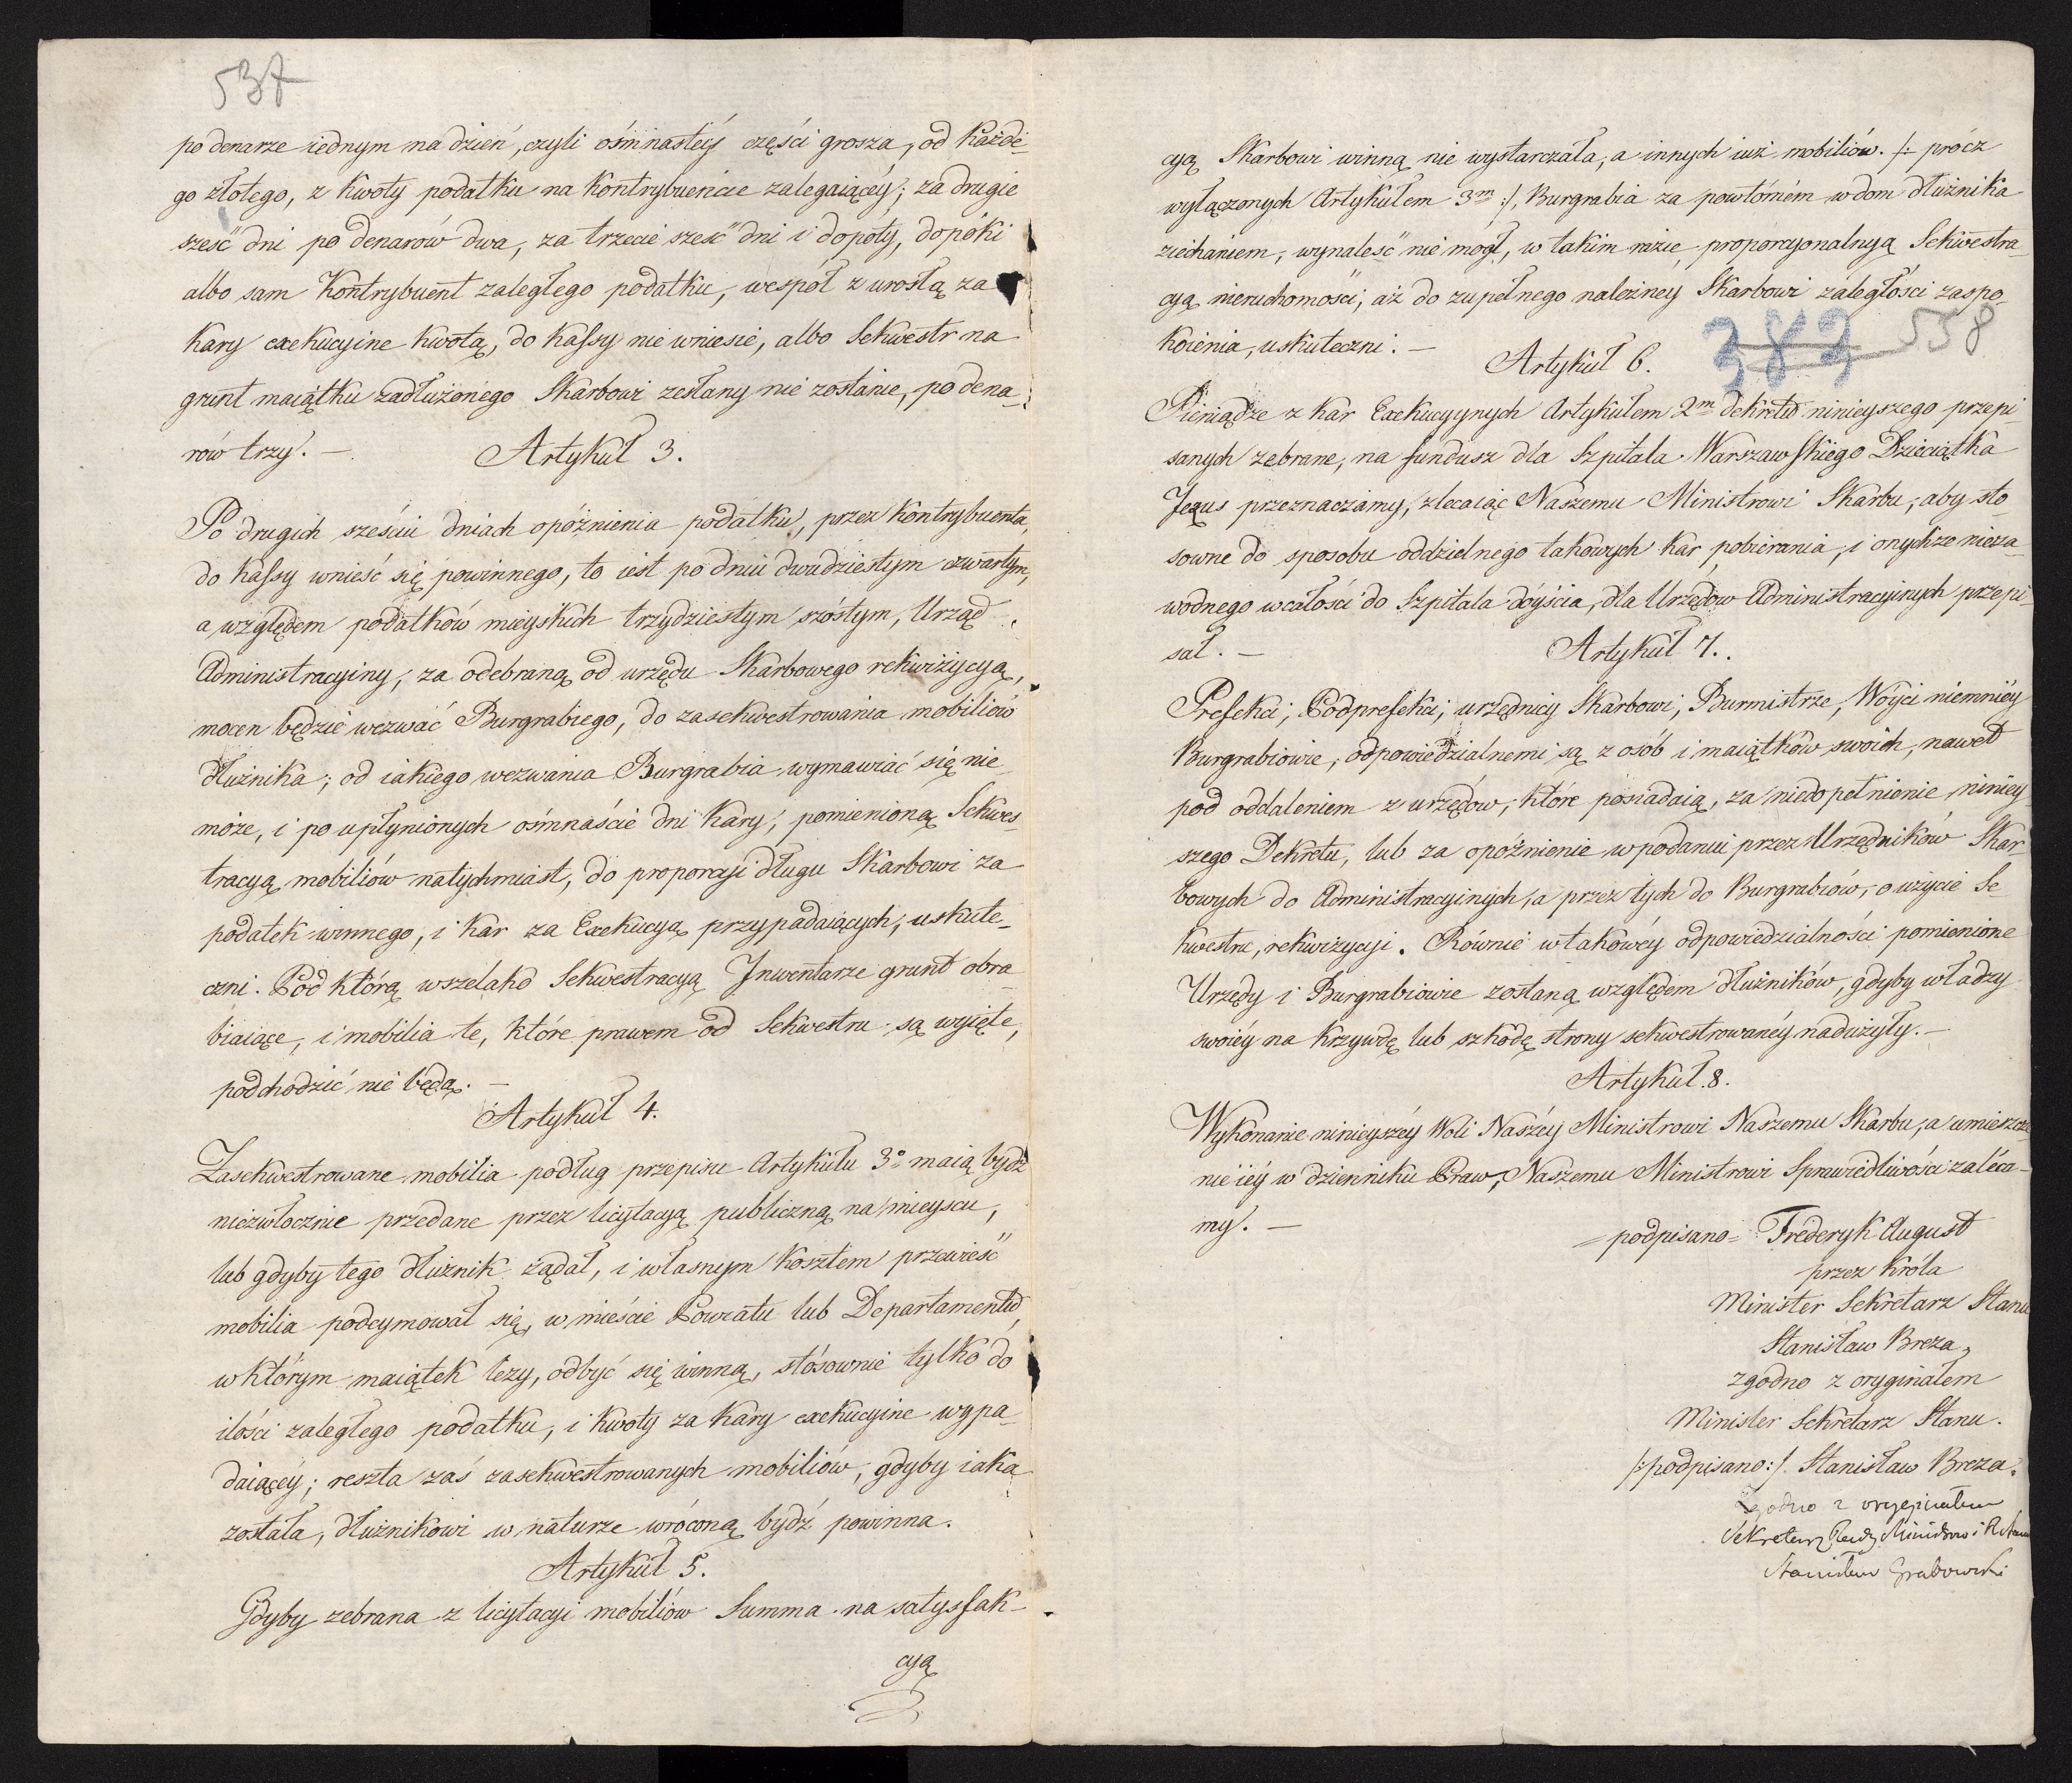 537
po denarze iednym na dzień, czyli ośmnastey części grosza, od każde-
go złotego, z kwoty podatku na kontrybuencie zalegaiącéy; za drugie
sześć dni po denarów dwa, za trzecie sześć dni i dopóty, dopóki
albo sam Kontrybuent zaległego podatku, wespół z urosłą za
kary exekucyine kwotą, do kassy nie wniesie, albo Sekwestr na
grunt maiątku zadłużonego Skarbowi zesłany nie zostanie, po dena-
rów trzy. —
Artykuł 3.
Po drugich sześciu dniach opóźnienia podatku, przez kontrybuenta,
do kassy wnieść się powinnego, to iest po dniu dwudziestym czwartym,
a względem podatków mieyskich trzydziestym szóstym, Urząd
Administracyiny, za odebraną od urzędu Skarbowego rekwizycyą,
mocen będzie wezwać Burgrabiego, do zasekwestrowania mobiliów
dłużnika; od iakiego wezwania Burgrabia wymawiać się nie
może, i po upłynionych ośmnaście dni kary, pomienioną Sekwes-
tracyą mobiliów natychmiast, do proporcyi długu Skarbowi za
podatek winnego, i kar za Exekucyą przypadaiących, uskute-
czni. Pod którą wszelako Sekwestracyą Inwentarze grunt obra-
biaiące, i mobilia te, które prawem od Sekwestru są wyięte,
podchodzić nie będą. —
Artykuł 4.
Zasekwestrowane mobilia podług przepisu Artykułu 3º maią bydź
niezwłocznie przedane przez licytacyą publiczną na mieyscu,
lub gdyby tego dłużnik żądał, i własnym kosztem przewieść
mobilia podeymował się, w mieście Powiatu lub Departamentu,
w którym maiątek leży, odbyć się winną, stósownie tylko do
ilości zaległego podatku, i kwoty za kary exekucyine wypa-
daiącéy; reszta zaś zasekwestrowanych mobiliów, gdyby iaka
została, dłużnikowi w naturze wróconą bydź powinna.
Artykuł 5.
Gdyby zebrana z licytacyi mobiliów Summa na satysfak-
cyą
cyą Skarbowi winną nie wystarczała, a innych iuż mobiliów /: prócz
wyłączonych Artykułem 3m :/, Burgrabia za powtórném w dom dłużnika
ziechaniem, wynaleść nie mógł, w takim razie proporcyonalnyą Sekwestra-
cyą nieruchomości, aż do zupełnego należney Skarbowi zaległości zaspo-
koienia, uskuteczni. —
382 558
Artykuł 6.
Pieniądze z kar Exekucyynych Artykułem 2m dekretu ninieyszego przepi-
sanych zebrane, na fundusz dla Szpitala Warszawskiego Dzieciątka
Jezus przeznaczamy, zlecaiąc Naszemu Ministrowi Skarbu, aby sto-
sowne do sposobu oddzielnego takowych kar pobierania, i onychże nieza-
wodnego w całości do Szpitala dóyścia, dla Urzędów Administracyinych przepi-
sał. —
Artykuł 7.
Prefekci, Podprefekci, urzędnicy Skarbowi, Burmistrze, Wóyci niemniéy
Burgrabiowie, odpowiedzialnemi są z osób i maiątków swoich, nawet
pod oddaleniem z urzędów, które posiadaią, za niedopełnienie niniey-
szego Dekretu, lub za opóźnienie w podaniu przez Urzędników Skar-
bowych do Administracyinych, a przez tych do Burgrabiów, o użycie Se-
kwestru, rekwizycyi. Równie w takowéy odpowiedzialności pomienione
Urzędy i Burgrabiowie zostaną względem dłużników, gdyby władzy
swoiéy na krzywdę lub szkodę strony sekwestrowanéy nadużyły. —
Artykuł 8.
Wykonanie ninieyszéy Woli Naszéy Ministrowi Naszemu Skarbu, a umieszcze-
nie iéy w dzienniku Praw, Naszemu Ministrowi Sprawiedliwości zaléca-
my. —
= podpisano = Frederyk August
przez Króla
Minister Sekretarz Stanu
Stanisław Breza,
zgodno z oryginałem
Minister Sekretarz Stanu.
/: podpisano :/ Stanisław Breza.
Zgodno z oryginałem
Sekretarz Rady Ministrów i R. Stanu
Stanisław Grabowski